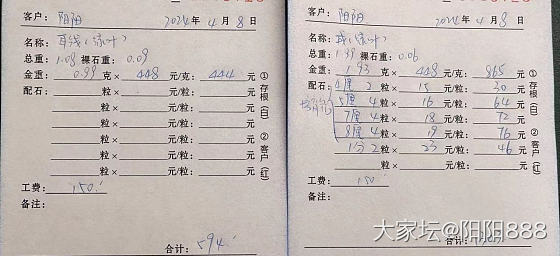 客户: 阳阳 2024年4月8日
名称: 耳线(绿叶)
总重: 1.08 裸石重: 0.09
金重: 0.99克× 448元/克: 444元
配石: 粒× 元/粒: 元
粒× 元/粒: 元
粒× 元/粒: 元
粒× 元/粒: 元
粒× 元/粒: 元
粒× 元/粒: 元
工费: 150.
备注:
合计: 594.
①存根(白) ②客户(红)
客户: 阳阳 2024年4月8日
名称: (绿叶)
总重: 1.99 裸石重: 0.06
金重: 1.93克× 448元/克: 865元
配石: 4厘2粒× 15元/粒: 30元
5厘4粒× 16元/粒: 64元
7厘4粒× 18元/粒: 72元
8厘4粒× 19元/粒: 76元
1分2粒× 23元/粒: 46元
粒× 元/粒: 元
工费: 150.
备注:
合计:
①存根(白) ②客户(红)
大家坛@阳阳888